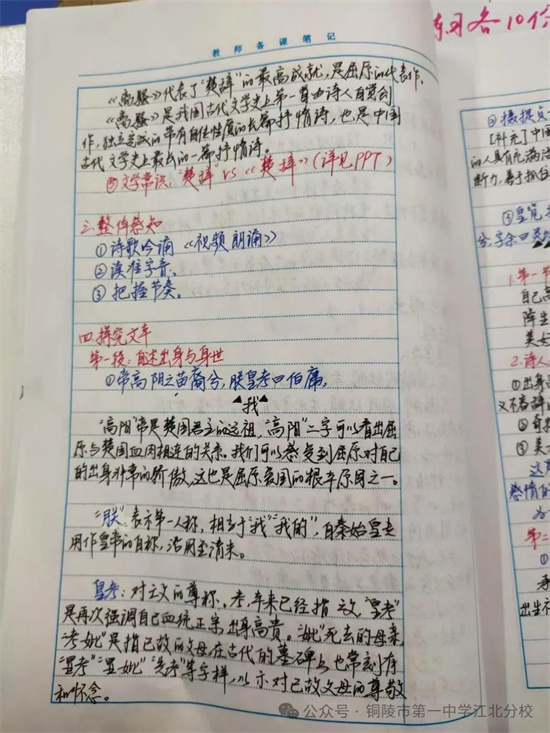 教师备课笔记
《离骚》代表了"楚辞"的最高成就,是屈原的代表作。
《离骚》是我国古代文学史上第一首由诗人自觉创
作,独立完成的带有自传性质的长篇抒情诗,也是中国
古代文学史上最长的一部抒情诗。
③文学常识:"楚辞" VS《楚辞》(详见PPT)
三.整体感知
①诗歌吟诵《视频朗诵》
②读准字音。
③把握节奏。
四.探究文本
第一段:自述出身与身世
①帝高阳之苗裔兮,朕皇考曰伯庸。
我
"高阳"帝是楚国君主的远祖,"高阳"二字可以看出屈
原与楚国血肉相连的关系。我们可以感受到屈原对自己
的出身非常的骄傲,这也是屈原爱国的根本原因之一。
"朕"表示第一人称,相当于"我""我的",自秦始皇起
用作皇帝的自称,沿用至清末。
皇考:对亡父的尊称。考,本来已经指亡父"皇考"
是再次强调自己血统正宗出身高贵。"妣"死去的母亲
"考妣"是指已故的父母在古代的墓碑上也常刻有
"显考""显妣""先考"等字样,以示对已故父母的尊敬
和怀念。
各10倍
[补充]
的人具有充满
③皇览
1.第一
自己高
降生
美好
2.诗人
①出身高
这
感情的
第二
①
公众号·铜陵市第一中学江北分校